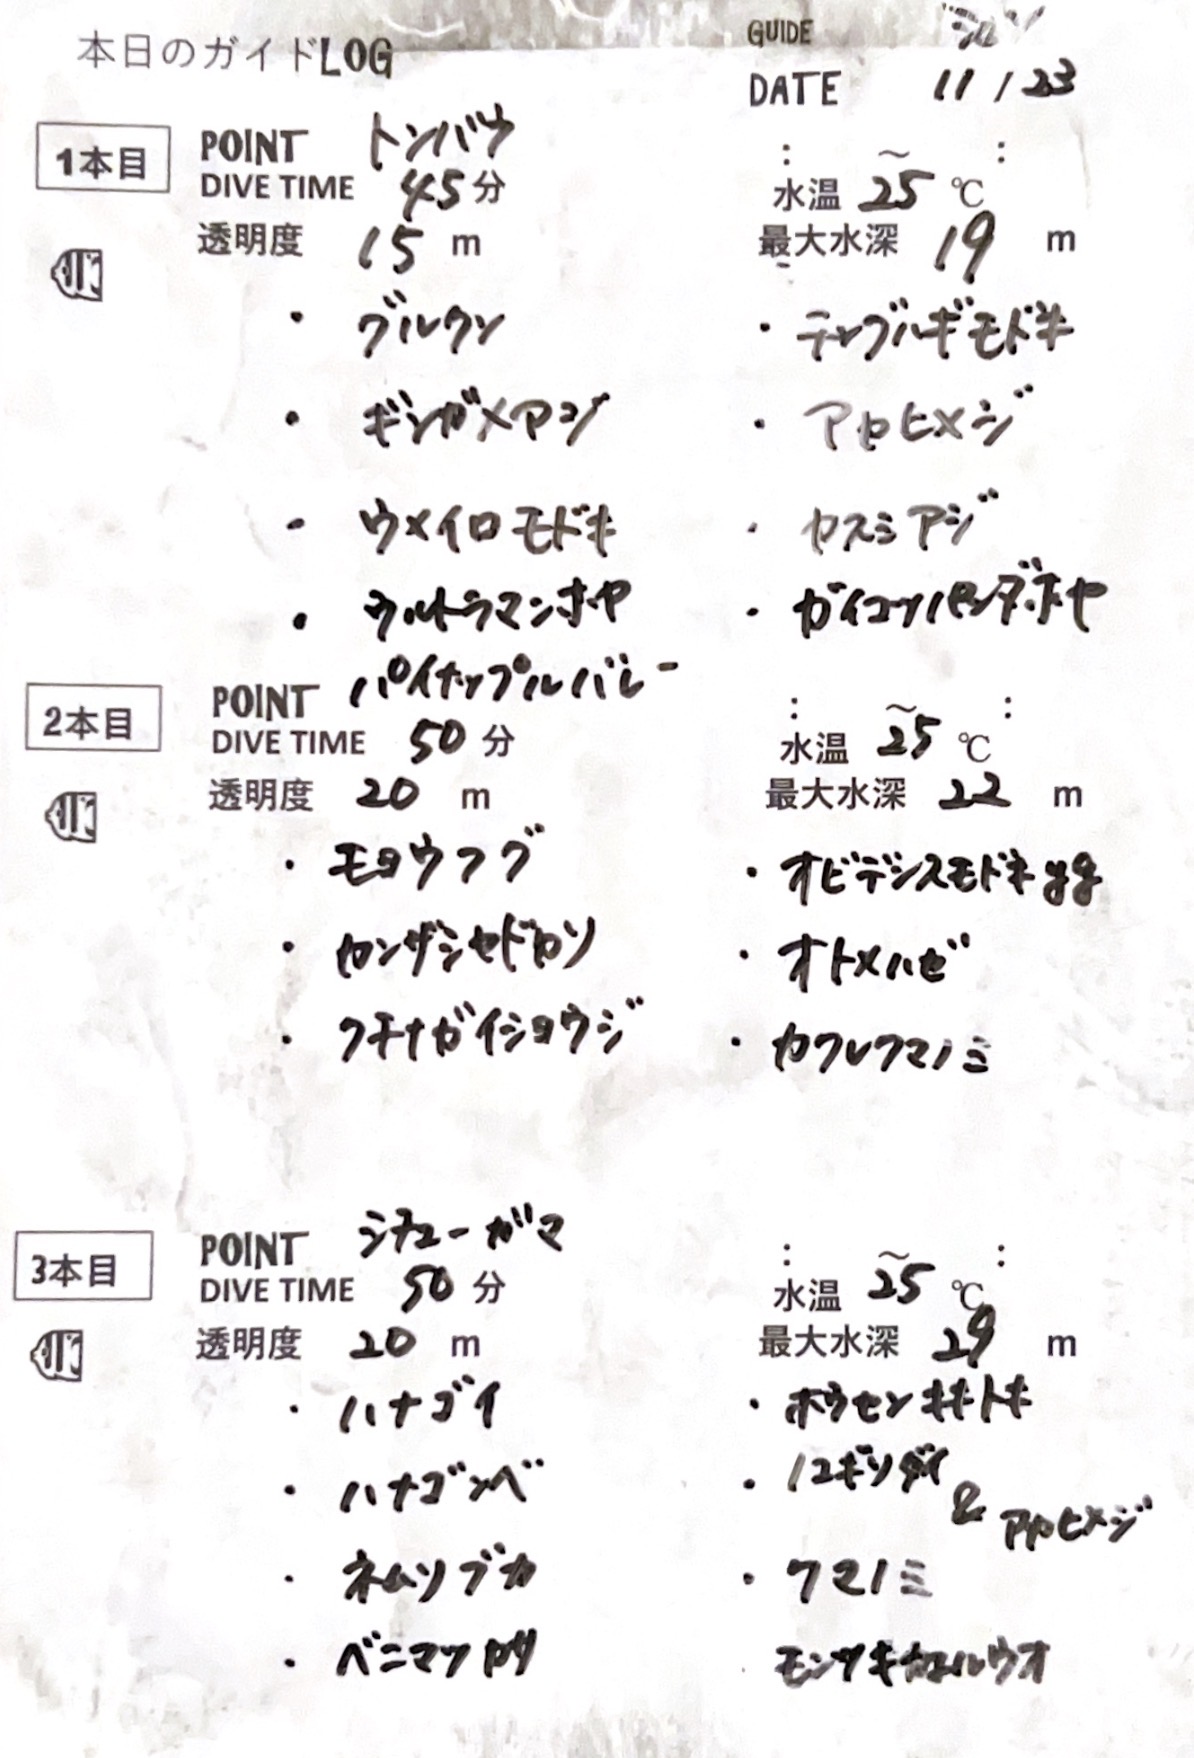 本日のガイドLOG
GUIDE
DATE 11/23
1本目
POINT トンバラ
DIVE TIME 45分
: ～ :
水温 25 ℃
透明度 15 m
最大水深 19 m
・グルクン
・テングハギモドキ
・ギンガメアジ
・アヤヒメジ
・ウメイロモドキ
・カスミアジ
・ウルトラマンホヤ
・ガイコツパンダホヤ
2本目
POINT パイナップルバレー
DIVE TIME 50分
: ～ :
水温 25 ℃
透明度 20 m
最大水深 22 m
・モヨウフグ
・オビテンスモドキyg
・カンザシヤドカリ
・オトメハゼ
・クチナガイシヨウジ
・カクレクマノミ
3本目
POINT シチューガマ
DIVE TIME 50分
: ～ :
水温 25 ℃
透明度 20 m
最大水深 29 m
・ハナゴイ
・ホウセキキントキ
・ハナゴンベ
・ノコギリダイ
& アカヒメジ
・ネムリブカ
・クマノミ
・ベニマツカサ
モンツキカエルウオ